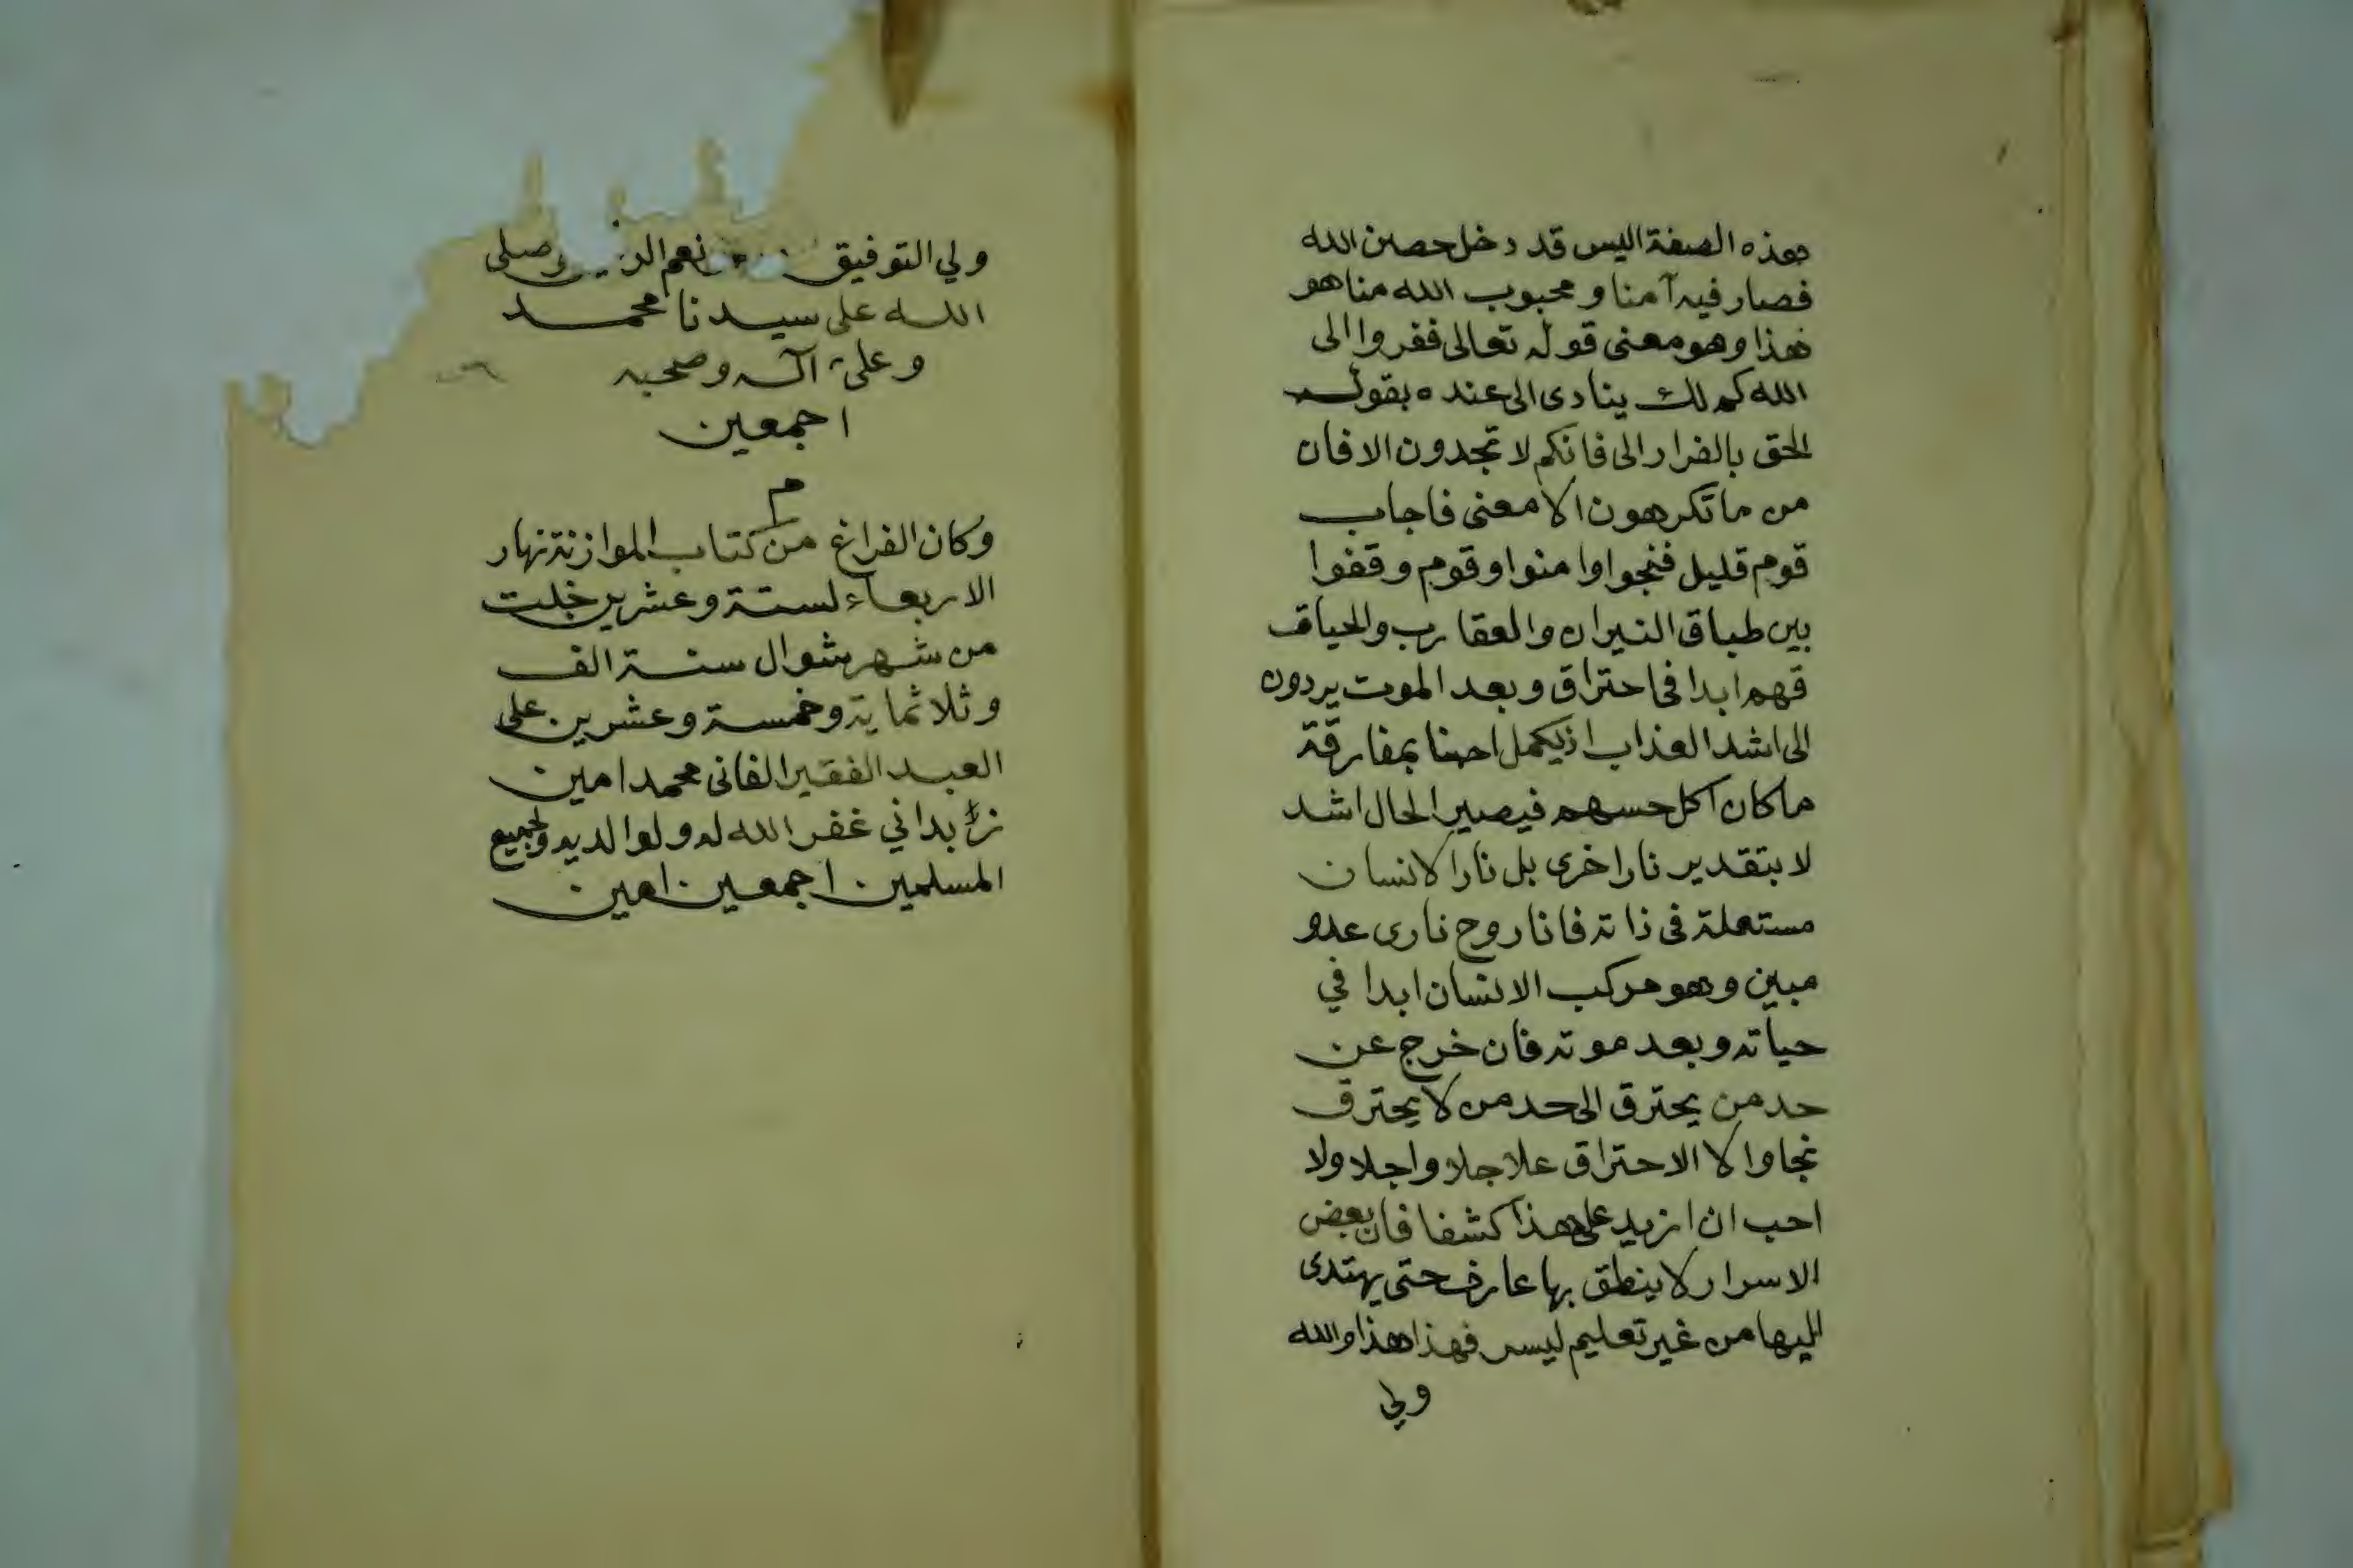 بهذه الصفة اليس قد دخل حصن الله
فصار فيه آمنا و محبوب الله مناهو
هذا وهو معنى قوله تعالى ففروا الى
الله كم لك ينادى الى عنده بقول
الحق بالفرار الى فانكم لا تجدون الافان
من ما تكرهون الا معنى فاجاب
قوم قليل فنجوا وامنوا وقوم وقفوا
بين طباق النيران والعقارب والحيات
فهم ابدا فى احتراق وبعد الموت يردون
الى اشد العذاب اذ يكمل بمفارقة
ماكان اكل حسهم فيصير الحال اشد
لا بتقدير نار اخرى بل نار الانسان
مستعلة فى ذاته فانا روح نارى عدو
مبين وهو مركب الانسان ابدا في
حياته وبعد موته فان خرج عن
حد من يحترق الى حد من لا يحترق
نجا والا الاحتراق علاجلا واجلا ولا
احب ان ازيد على هذا كشفا فان بعض
الاسرار لا ينطق بها عارف حتى يهتدى
اليها من غير تعليم ليس فهذا هذا والله
ولي
ولي التوفيق نعم صلى
الله على سيدنا محمد
وعلى آله وصحبه
اجمعين
م
وكان الفراغ من كتاب الموازنة نهار
الاربعاء لستة وعشرين خلت
من شهر شوال سنة الف
وثلاثماية وخمسة وعشرين على
العبد الفقير الفانى محمد امين
زبداني غفر الله له ولوالديه ولجميع
المسلمين اجمعين امين